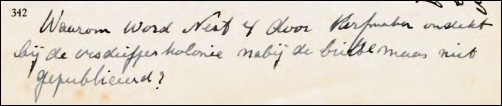 342
Waarom word Nest 4 door Verfmaker ondekt
bij de visdiefjes kolonie nabij de buite maas niet
gepubliceerd?